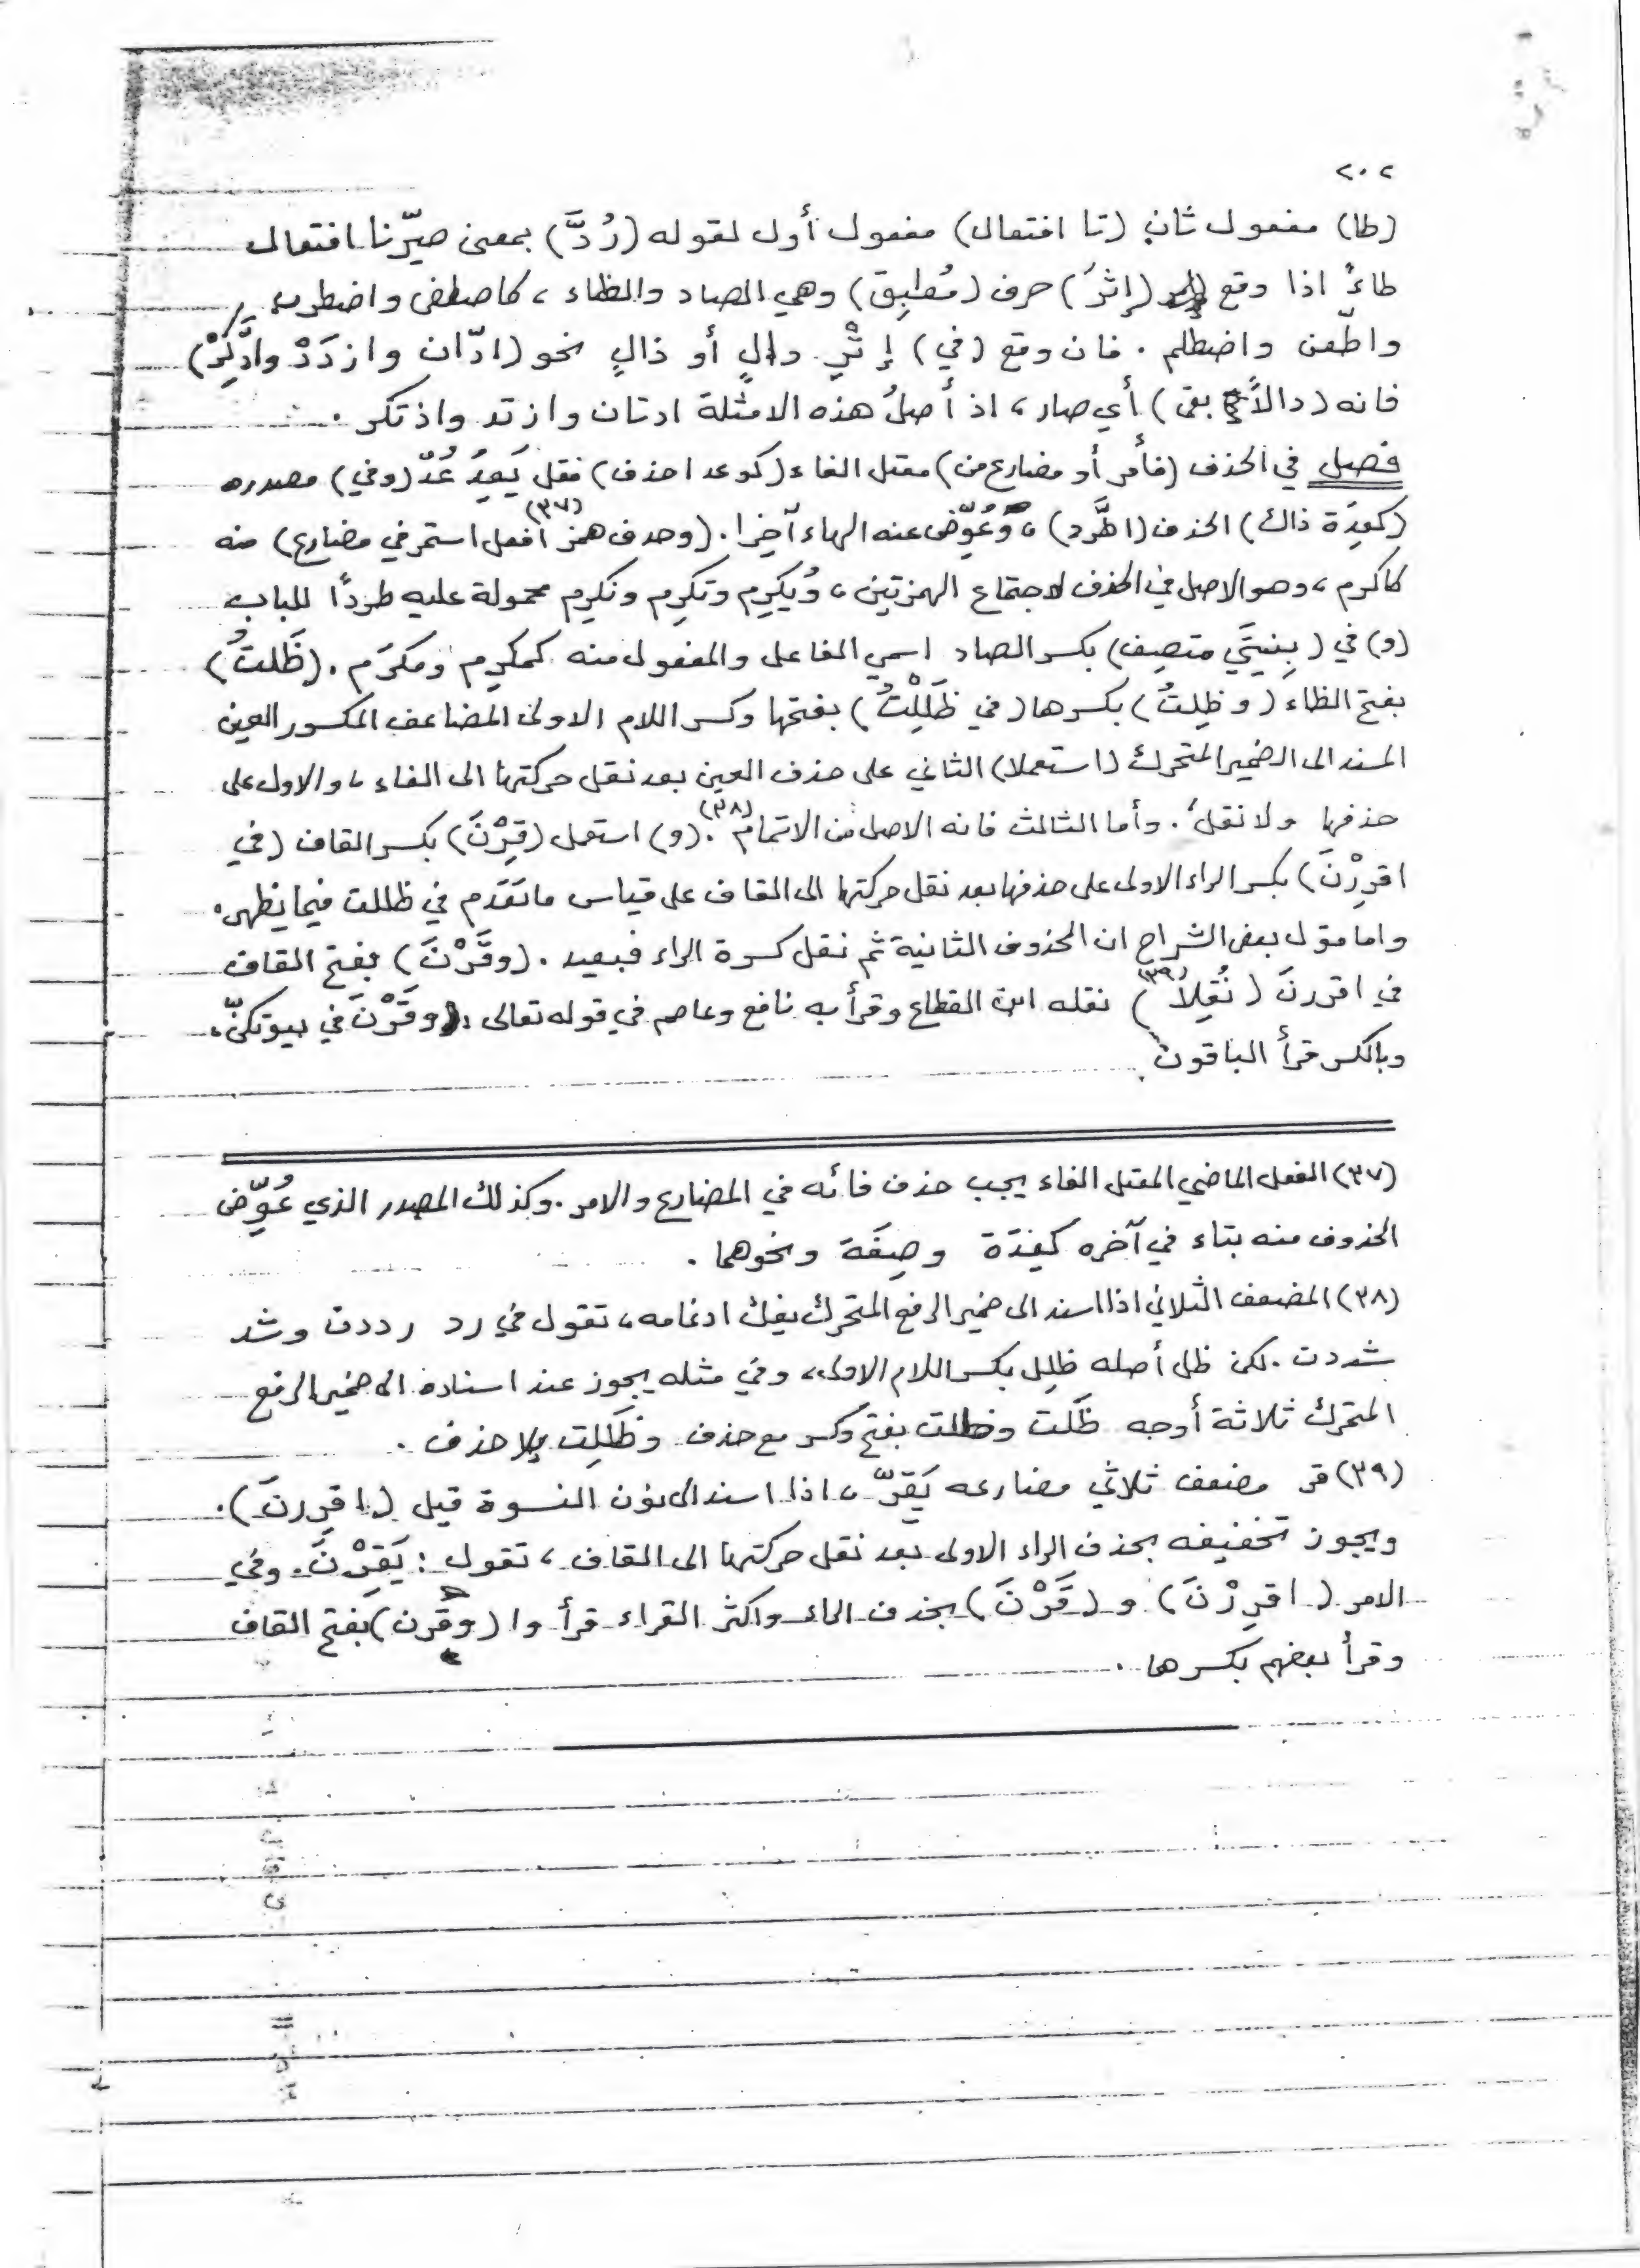 ٢٠٢
(طا) مفعول ثانٍ (تا افتعال) مفعول أول لقوله (رُدَّ) بمعنى صيّرنا افتعال
طاءً اذا وقع (إثرَ) حرف (مُطبِق) وهي الصاد والظاء ، كاصطفى واضطرب
واطّعن واضطلم . فان وقع (في) إثْرِ دالٍ أو ذالٍ نحو (ادّان وازدَدْ وادَّكِرْ)
فانه (دالاً بقى) أي صار ، اذ أصلُ هذه الامثلة ادتان وازتد واذتكر .
فصل في الحذف (فأمر أو مضارع من) معتل الفاء (كوعد احذف) فقل يَعِدُ عُدْ (وفي) مصدره
(كعِدَة ذاك) الحذف (اطَّرد) ، وعُوّض عنه الهاء آخرا . (وحدف همز أفعل استمر في مضارع) منه (٣٧)
كاكرم ، وهو الاصل في الحذف لاجتماع الهمزتين ، ويُكرِم وتكرِم ونكرِم محمولة عليه طردًا للباب
(و) في (بِنيتَي متصِف) بكسر الصاد اسمي الفاعل والمفعول منه كمكرِم ومكرَم . (ظَلتُ)
بفتح الظاء (وظِلتُ) بكسرها (في ظَلِلْتُ) بفتحها وكسر اللام الاولى المضاعف المكسور العين
المسند الى الضمير المتحرك (استعملا) الثاني على حذف العين بعد نقل حركتها الى الفاء ، والاول على
حذفها ولا نقلَ . وأما الثالث فانه الاصل من الاتمام (٣٨) . (و) استعمل (قِرْنَ) بكسر القاف (في
اقرِرْنَ) بكسر الراء الاولى على حذفها بعد نقل حركتها الى القاف على قياس ما تقدم في ظللت فيما يظهر ،
واما قول بعض الشراح ان المحذوف الثانية ثم نقل كسرة الراء فبعيد . (وقَرْنَ) بفتح القاف
في اقررنَ (نُقِلا (٣٩)) نقله ابن القطاع وقرأ به نافع وعاصم في قوله تعالى : (وقَرْنَ في بيوتكنّ ،
وبالكسر قرأ الباقون
(٣٧) الفعل الماضي المعتل الفاء يجب حذف فائه في المضارع والامر . وكذلك المصدر الذي عُوّض
المحذوف منه بتاء في آخره كعِدَة وصِفَة ونحوهما .
(٣٨) المضعف الثلاثي اذا اسند الى ضمير الرفع المتحرك يفك ادغامه ، تقول في رد رددت وشد
شددت . لكن ظل أصله ظلِل بكسر اللام الاولى ، وفي مثله يجوز عند اسناده الى ضمير الرفع
المتحرك ثلاثة أوجه ظَلت وظلت بفتح وكسر مع حذف وظَلِلت بلا حذف .
(٣٩) قر مضعف ثلاثي مضارعه يَقِرّ ، اذا اسند الى نون النسوة قيل (اقرِرنَ) .
ويجوز تخفيفه بحذف الراء الاولى بعد نقل حركتها الى القاف ، تقول : يَقِرْنَ . وفي
الامر (اقرِرْنَ) و (قَرْنَ) بحذف الراء واكثر القراء قرأوا (وقرن) بفتح القاف
وقرأ بعضهم بكسرها .